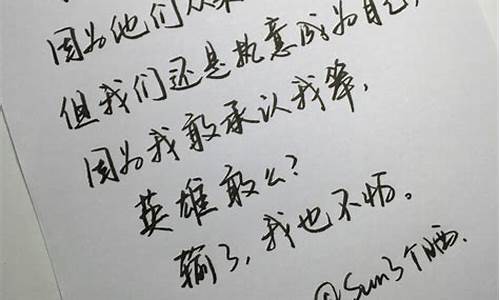 因为他们从来
但我们还是执意成为自己,
因为我敢承认我笨,
英雄敢么?
输了,我也不怕。
@Sun3个